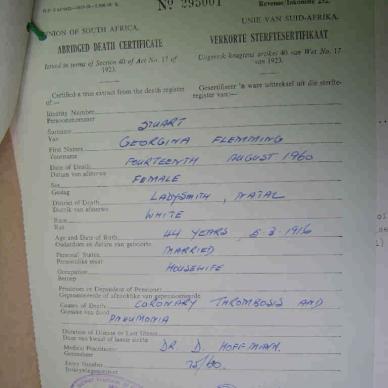 Nº 295001
Revenue/Inkomste
UNION OF SOUTH AFRICA.
UNIE VAN SUID-AFRIKA.
ABRIDGED DEATH CERTIFICATE
VERKORTE STERFTESERTIFIKAAT
Issued in terms of Section 40 of Act No. 17 of 1923.
Uitgereik kragtens artikel 40 van Wet No. 17 van 1923.
Certified a true extract from the death register of:—
Gesertifiseer 'n ware uittreksel uit die sterfteregister van:—
Identity Number
Persoonsnommer
Surname STUART
Van
First Names GEORGINA FLEMMING
Voorname
Date of Death FOURTEENTH AUGUST 1960
Datum van afsterwe
Sex FEMALE
Geslag
District of Death LADYSMITH, NATAL
Distrik van afsterwe
Race WHITE
Ras
Age and Date of Birth 44 YEARS 1916
Ouderdom en datum van geboorte
Personal Status MARRIED
Persoonlike staat
Occupation HOUSEWIFE
Beroep
Pensioner or Dependent of Pensioner
Gepensioneerde of afhanklike van gepensioneerde
Causes of Death CORONARY THROMBOSIS AND
Oorsake van dood PNEUMONIA
Duration of Disease or Last Illness
Duur van kwaal of laaste siekte
Medical Practitioner DR D. HOFFMANN.
Geneesheer
Entry Number 75/60.
Inskrywingsnommer